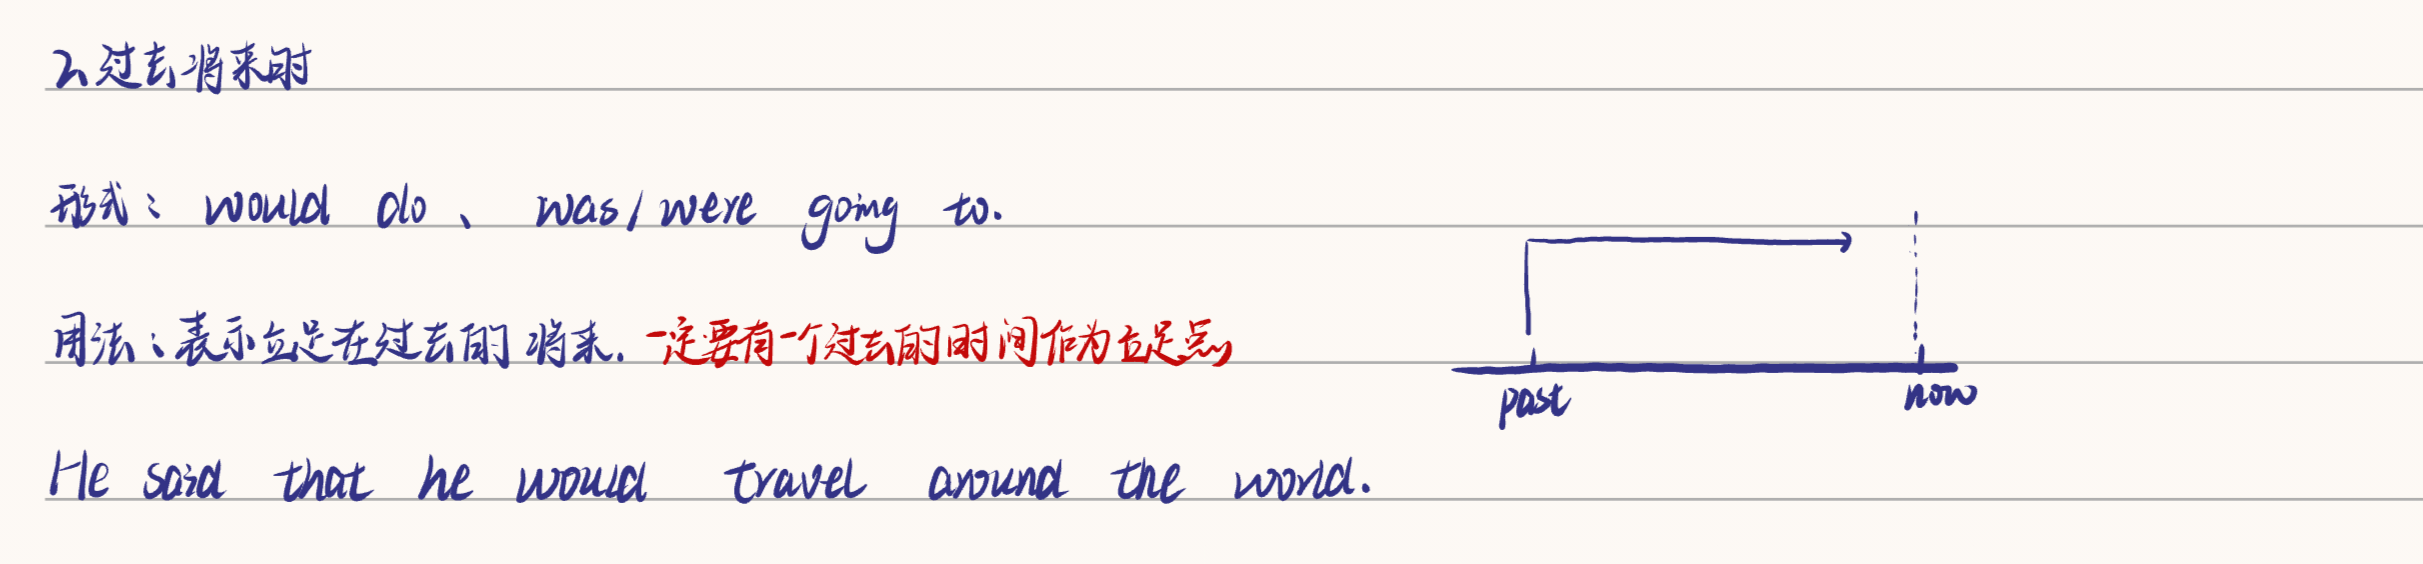 2、过去将来时
形式：would do、was/were going to.
用法：表示立足在过去的将来.一定要有一个过去的时间作为立足点
past now
He said that he would travel around the world.